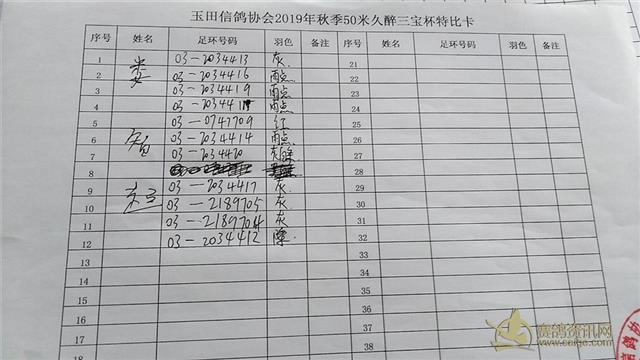 玉田信鸽协会2019年秋季50米久醉三宝杯特比卡
序号 姓名 足环号码 羽色 备注 序号 姓名 足环号码 羽色 备注
1 娄 03-2034413 灰 21
2 03-2034416 雨点 22
3 03-2034419 雨点 23
4 03-203441 雨点 24
5 03-0747709 红 25
6 智 03-2034414 雨点 26
7 03-2034420 灰 27
8 28
9 03-2034417 灰 29
10 03-2189705 灰 30
11 03-2189704 灰 31
12 03-2034412 32
13 33
14 34
15 35
16 36
17 37
18 38
赛鸽资讯网
www.caige.com